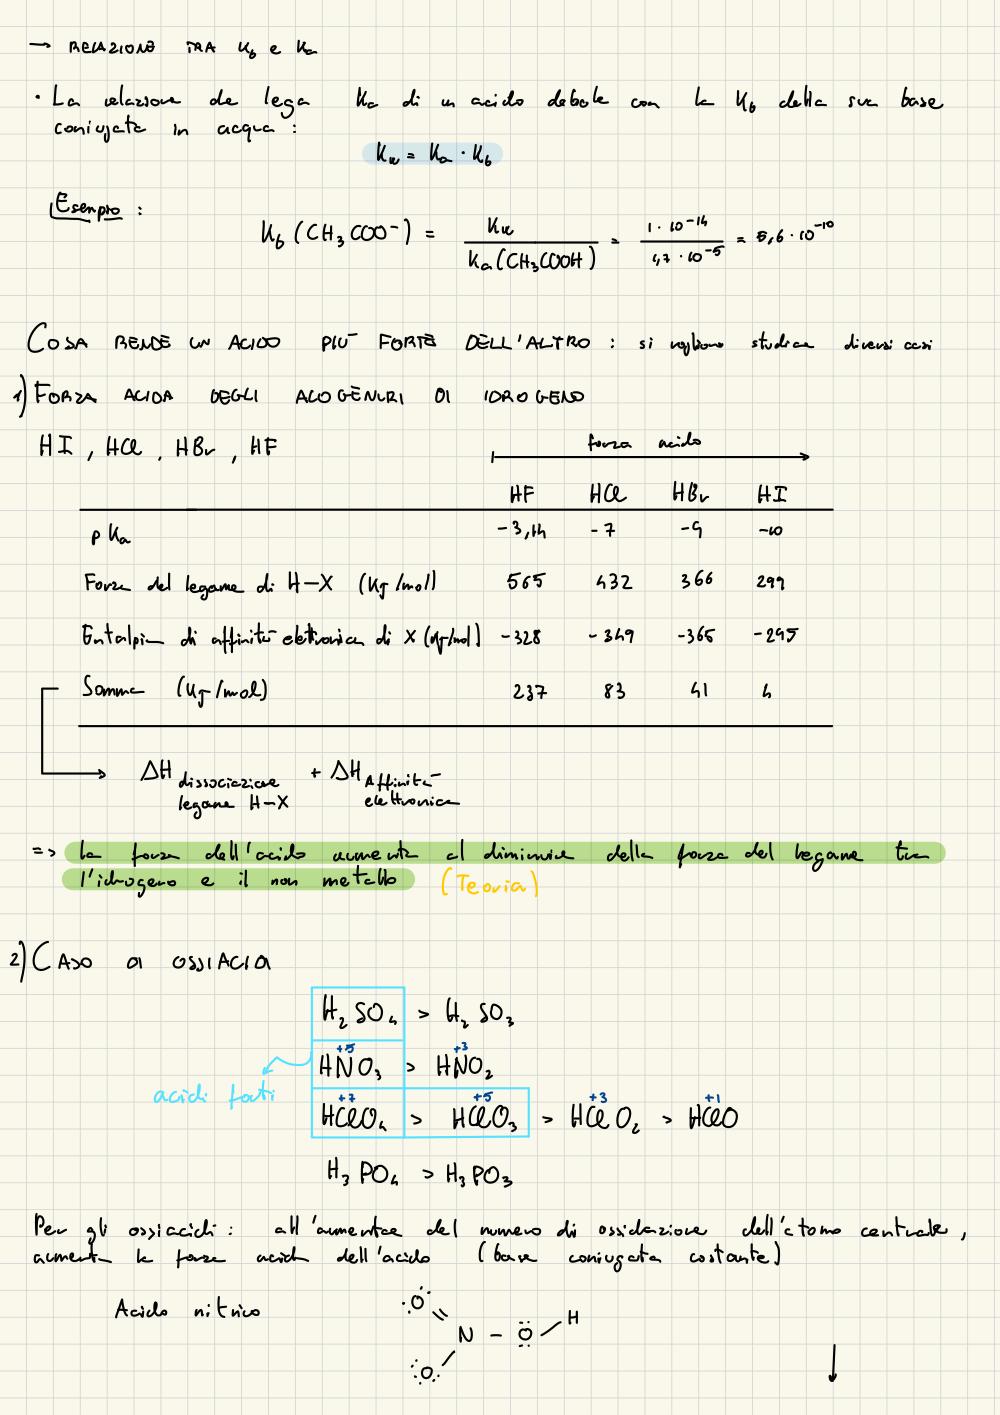 → RELAZIONE TRA Kb e Ka
· La relazione che lega Ka di un acido debole con la Kb della sua base
coniugata in acqua :
Kw = Ka · Kb
Esempio :
Kb (CH₃COO⁻) = Kw / Ka (CH₃COOH) = 1 · 10⁻¹⁴ / 1,7 · 10⁻⁵ = 5,6 · 10⁻¹⁰
COSA RENDE UN ACIDO PIÙ FORTE DELL'ALTRO : si vogliono studiare diversi casi
1) FORZA ACIDA DEGLI ALOGENURI DI IDROGENO
HI , HCl , HBr , HF
forza acido
HF HCl HBr HI
pKa -3,14 -7 -9 -10
Forza del legame di H-X (KJ/mol) 565 432 366 299
Entalpia di affinità elettronica di X (KJ/mol) -328 -349 -365 -295
Somma (KJ/mol) 237 83 41 4
ΔH dissociazione legame H-X + ΔH Affinità elettronica
=> la forza dell'acido aumenta al diminuire della forza del legame tra
l'idrogeno e il non metallo (Teoria)
2) CASO DI OSSIACIDI
H₂SO₄ > H₂SO₃
+5 +3
HNO₃ > HNO₂
acidi forti
+7 +5 +3 +1
HClO₄ > HClO₃ > HClO₂ > HClO
H₃PO₄ > H₃PO₃
Per gli ossiacidi : all'aumentare del numero di ossidazione dell'atomo centrale ,
aumenta la forza acida dell'acido (base coniugata costante)
Acido nitrico
O
N - O H
O